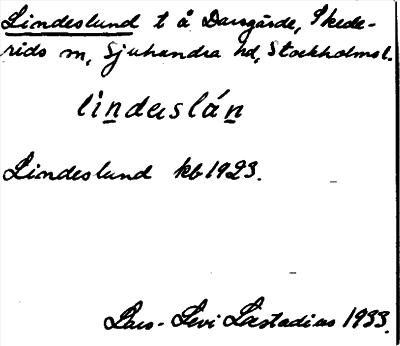 Lindeslund t å Darsgärde, Skede-
rids sn, Sjuhundra hd, Stockholms l.
lindəslán
Lindeslund kb 1923.
Lars-Levi Læstadius 1933.